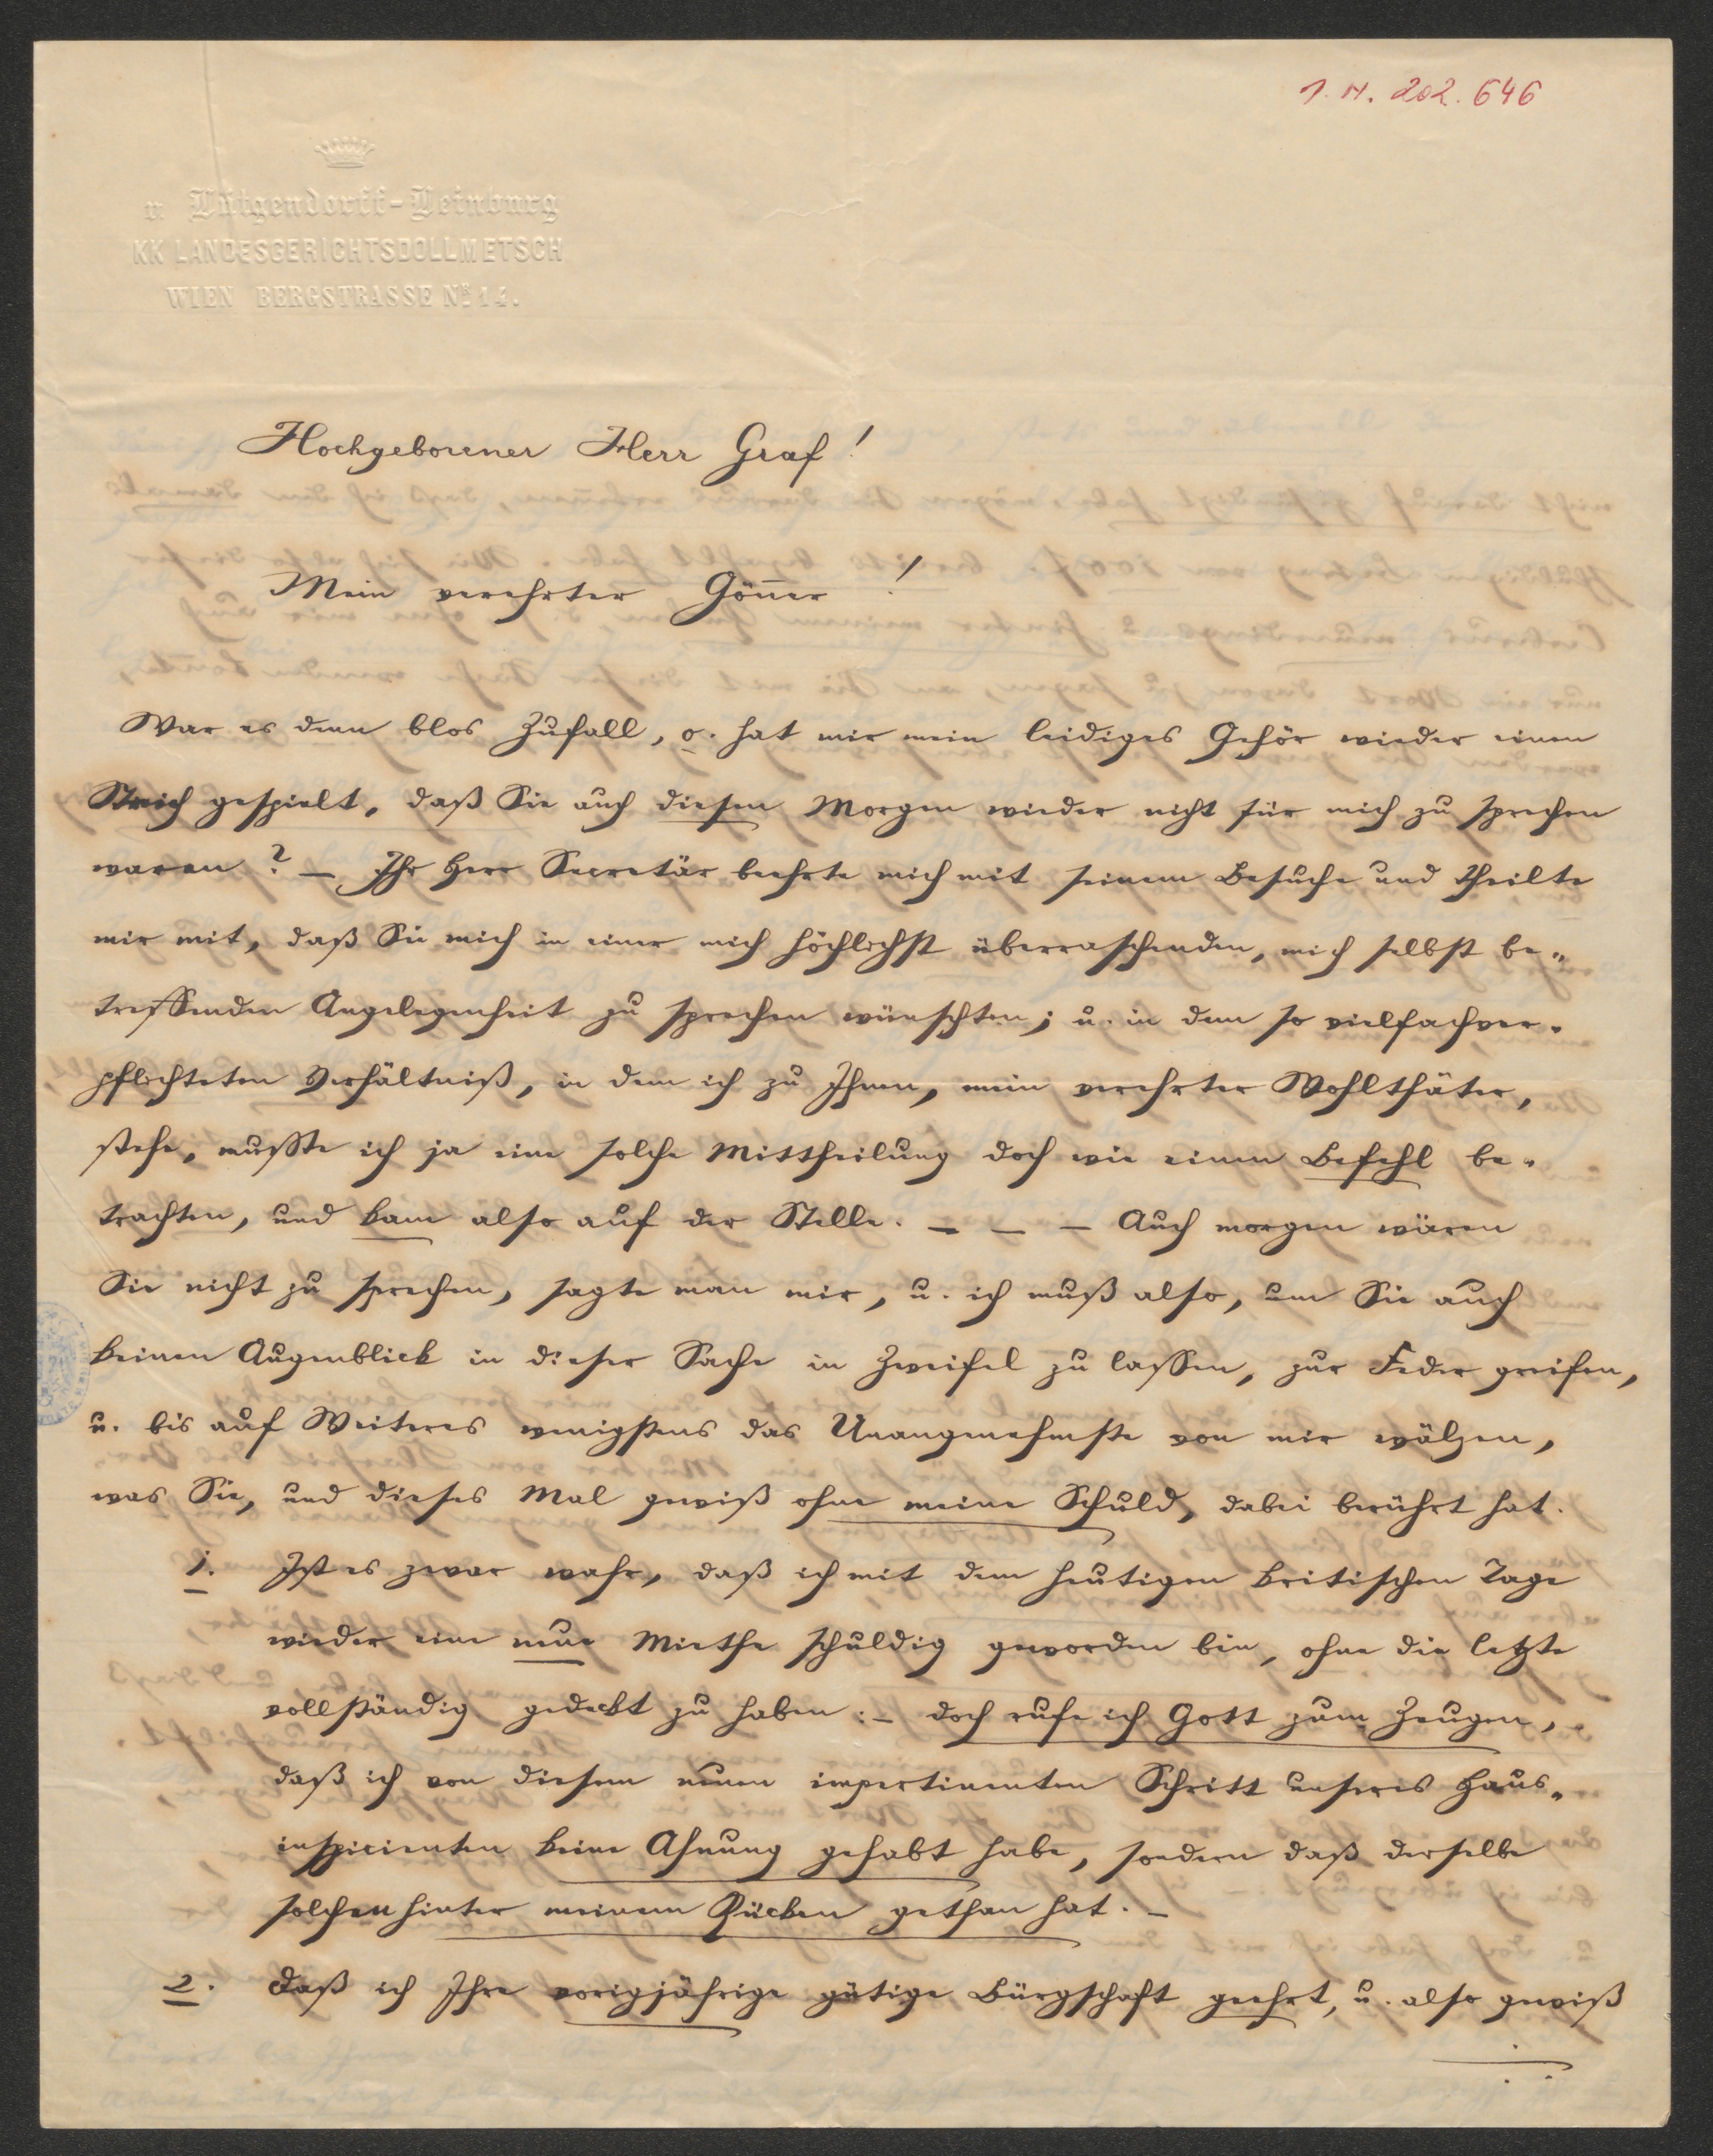 I. N. 202.646
v. Lütgendorff-Leinburg
KK LANDESGERICHTSDOLLMETSCH
WIEN BERGSTRASSE NR 14.
Hochgeborener Herr Graf!
Mein verehrter Gönner!
War es denn blos Zufall, o. hat mir mein leidiges Gehör wieder einen
Streich gespielt, daß Sie auch diesen Morgen wieder nicht für mich zu sprechen
waren? — Ihr Herr Secretär beehrte mich mit seinem Besuche und theilte
mir mit, daß Sie mich in einer mich höchlichst überraschenden, mich selbst be-
treffenden Angelegenheit zu sprechen wünschten; u. in dem so vielfachver-
pflichteten Verhältniß, in dem ich zu Ihnen, mein verehrter Wohlthäter,
stehe, mußte ich ja eine solche Mittheilung doch wie einen Befehl be-
trachten, und kam also auf der Stelle. — — — Auch morgen wären
Sie nicht zu sprechen, sagte man mir, u. ich muß also, um Sie auch
keinen Augenblick in dieser Sache in Zweifel zu lassen, zur Feder greifen,
u. bis auf Weiteres wenigstens das Unangenehmste von mir wälzen,
was Sie, und dieses Mal gewiß ohne meine Schuld, dabei berührt hat.
1. Ist es zwar wahr, daß ich mit dem heutigen kritischen Tage
wieder eine neue Miethe schuldig geworden bin, ohne die letzte
vollständig gedeckt zu haben: — doch rufe ich Gott zum Zeugen,
daß ich von diesem neuen impertinenten Schritt unseres Haus-
inspicienten keine Ahnung gehabt habe, sondern daß derselbe
solchen hinter meinem Rücken gethan hat. —
2. Daß ich Ihre vorigjährige gütige Bürgschaft geehrt, u. also gewiß